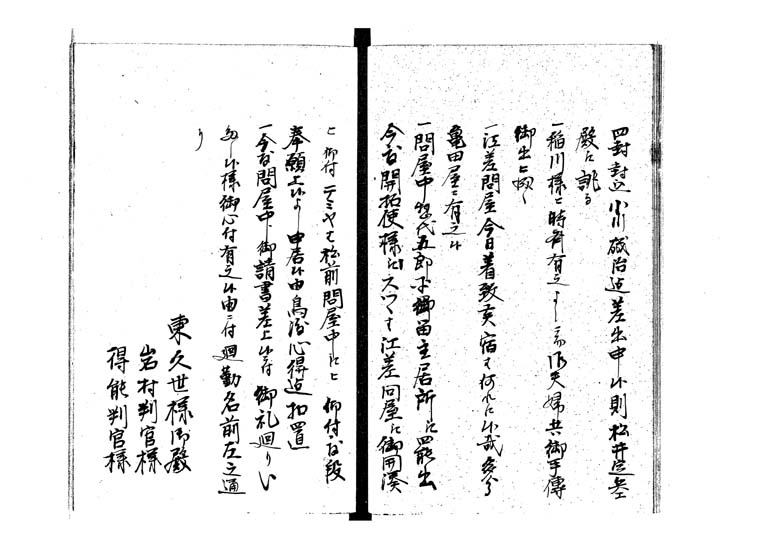 四封封込小川磯治迠差出申候則松井
殿に誂る
一稲川様ニ時斉有之よし ニ而御夫婦共御手傳
御出ニ
一江差問屋今日着致其宿も何れに候哉多分
亀田屋ニ有之候
一問屋中惣代五郎平御留主居所に罷出
今度開拓使様スツヽ江差問屋に御開湊
ニ仰付テミヤも松前問屋中にと仰付度段
奉願上候よし申居候由鳥渡心得迠扣置
一今度問屋中御請書差上候付御礼廻りい
多し候様御心付有之候由ニ付廻勤名前左之通
り
東久世様御殿
岩村判官様
得能判官様